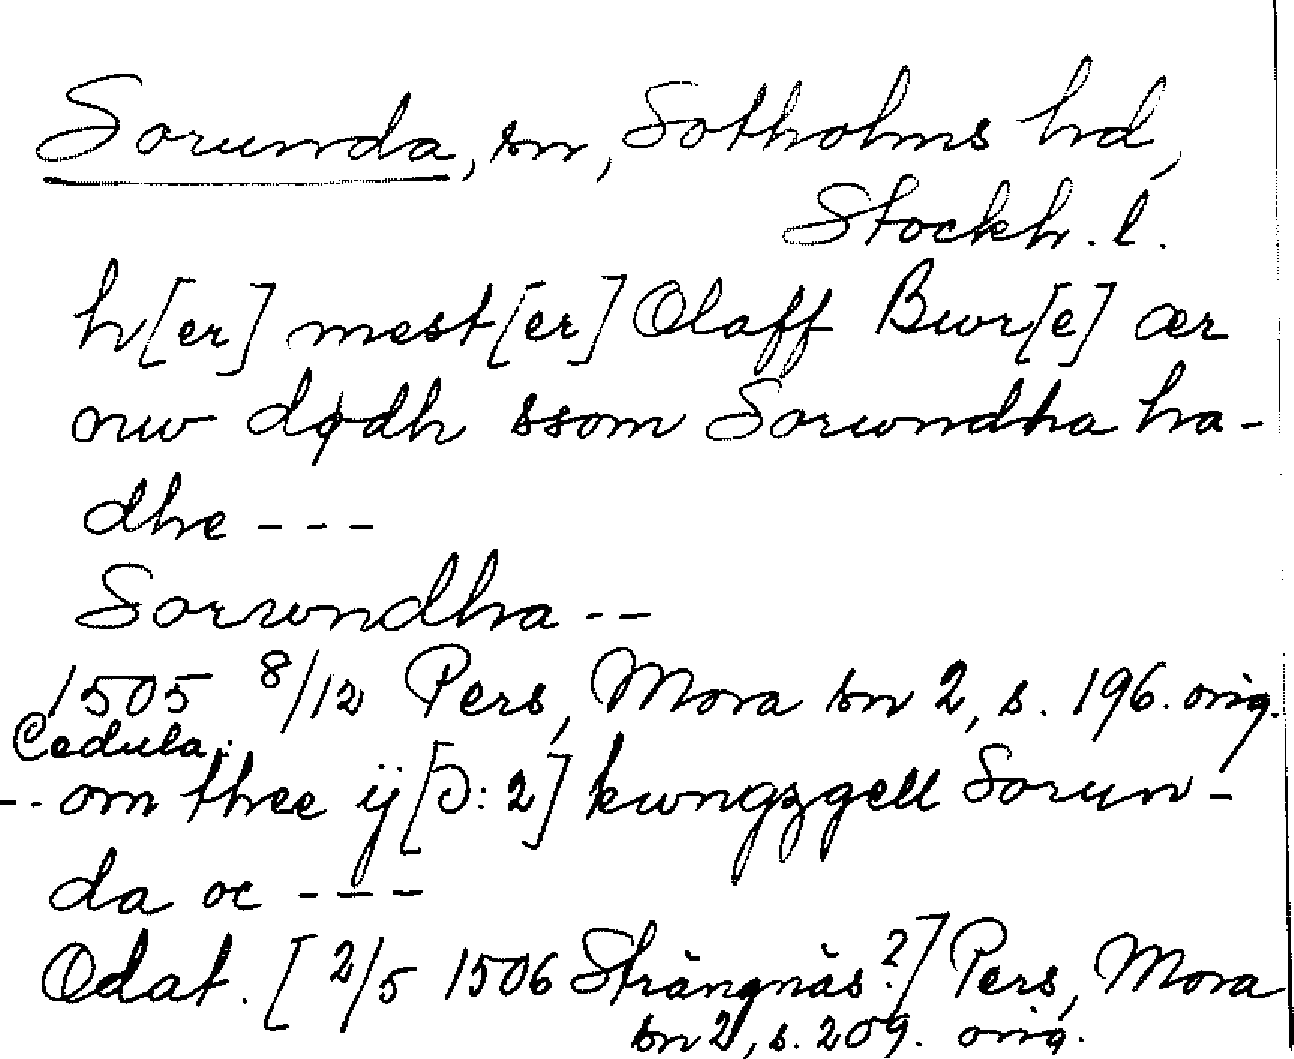 Sorunda, sn, Sotholms hd,
Stockh. l.
h[er] mest[er] Olaff Bwr[e] ær
nw dødh ssom Sorwndha ha-
dhe ---
Sorwndha --
1505 8/12 Pers, Mora sn 2, s. 196. orig.
Cedula:
-- om thee ij [Ɔ: 2] kwngzgell Sorun-
da oc ---
Odat. [2/5 1506 Strängnäs?] Pers, Mora
sn 2, s. 209. orig.